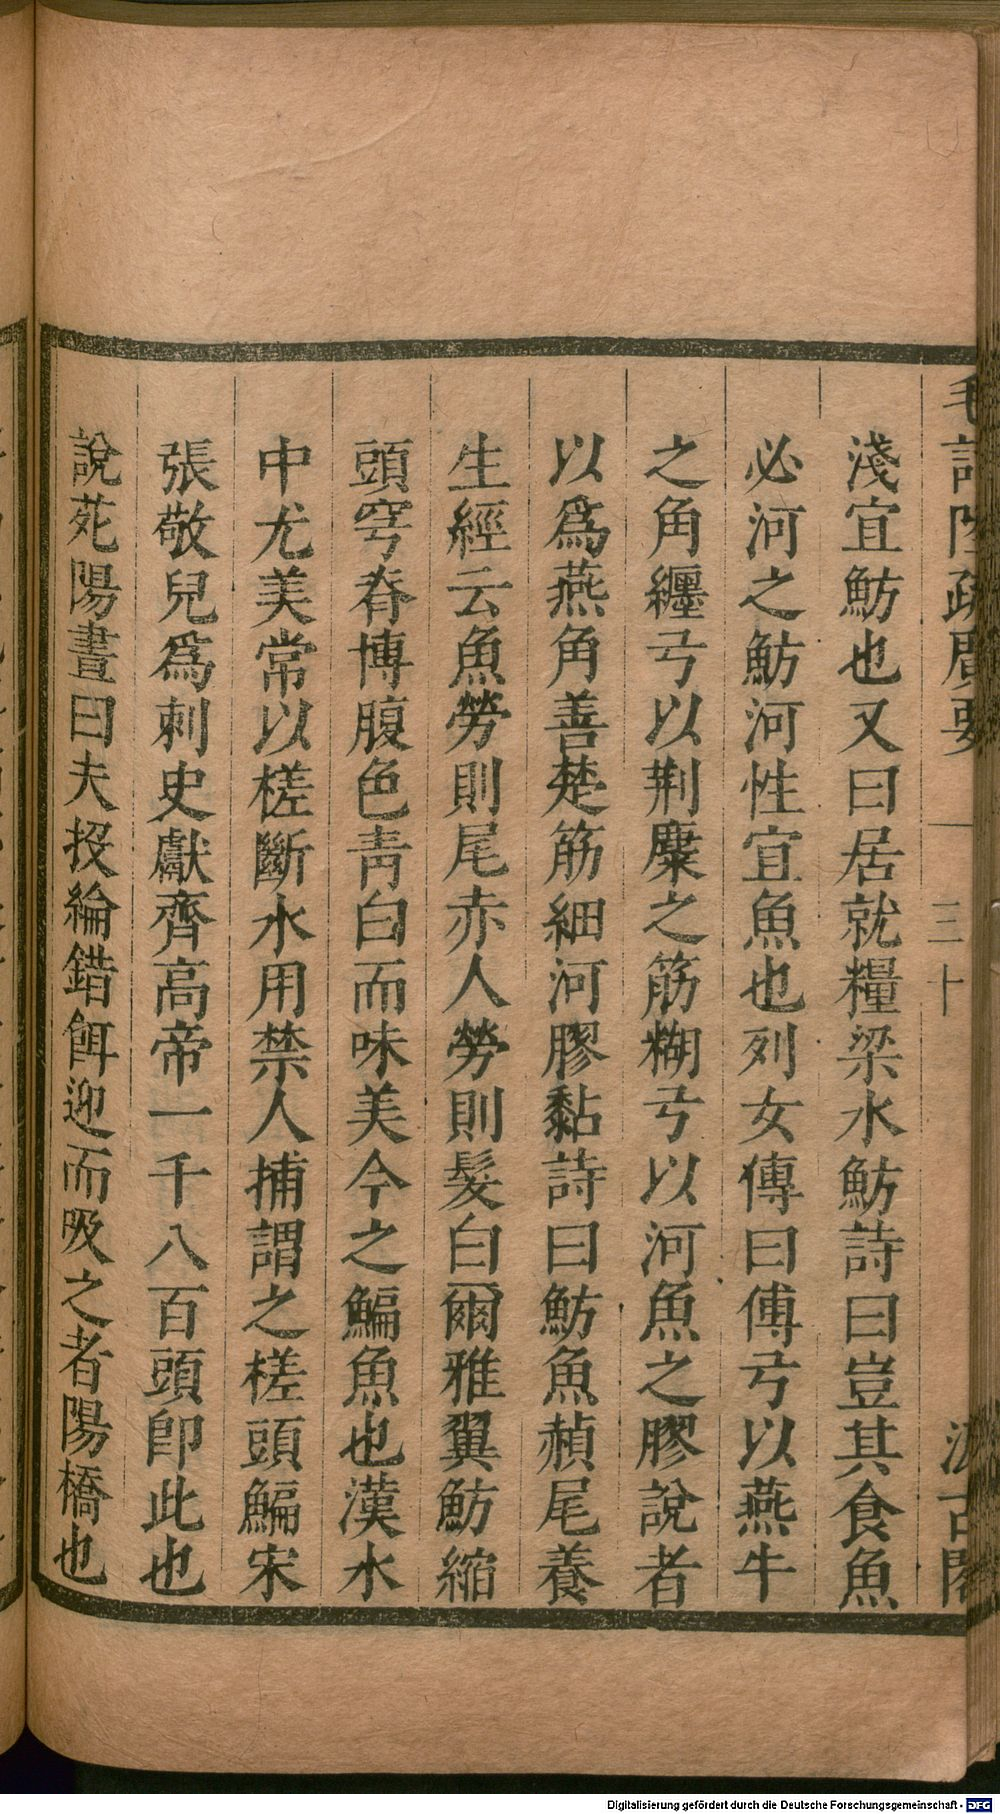 毛詩陸疏廣要
三十
汲古閣
淺宜魴也又曰居就糧梁水魴詩曰豈其食魚
必河之魴河性宜魚也列女傳曰傅弓以燕牛
之角纏弓以荆麋之筋糊弓以河魚之膠說者
以爲燕角善楚筋細河膠黏詩曰魴魚赬尾養
生經云魚勞則尾赤人勞則髮白爾雅翼魴縮
頭穹脊博腹色靑白而味美今之鯿魚也漢水
中尤美常以槎斷水用禁人捕謂之槎頭鯿宋
張敬兒爲刺史獻齊高帝一千八百頭卽此也
說苑陽晝曰夫投綸錯餌迎而吸之者陽橋也
Digitalisierung gefördert durch die Deutsche Forschungsgemeinschaft - DFG